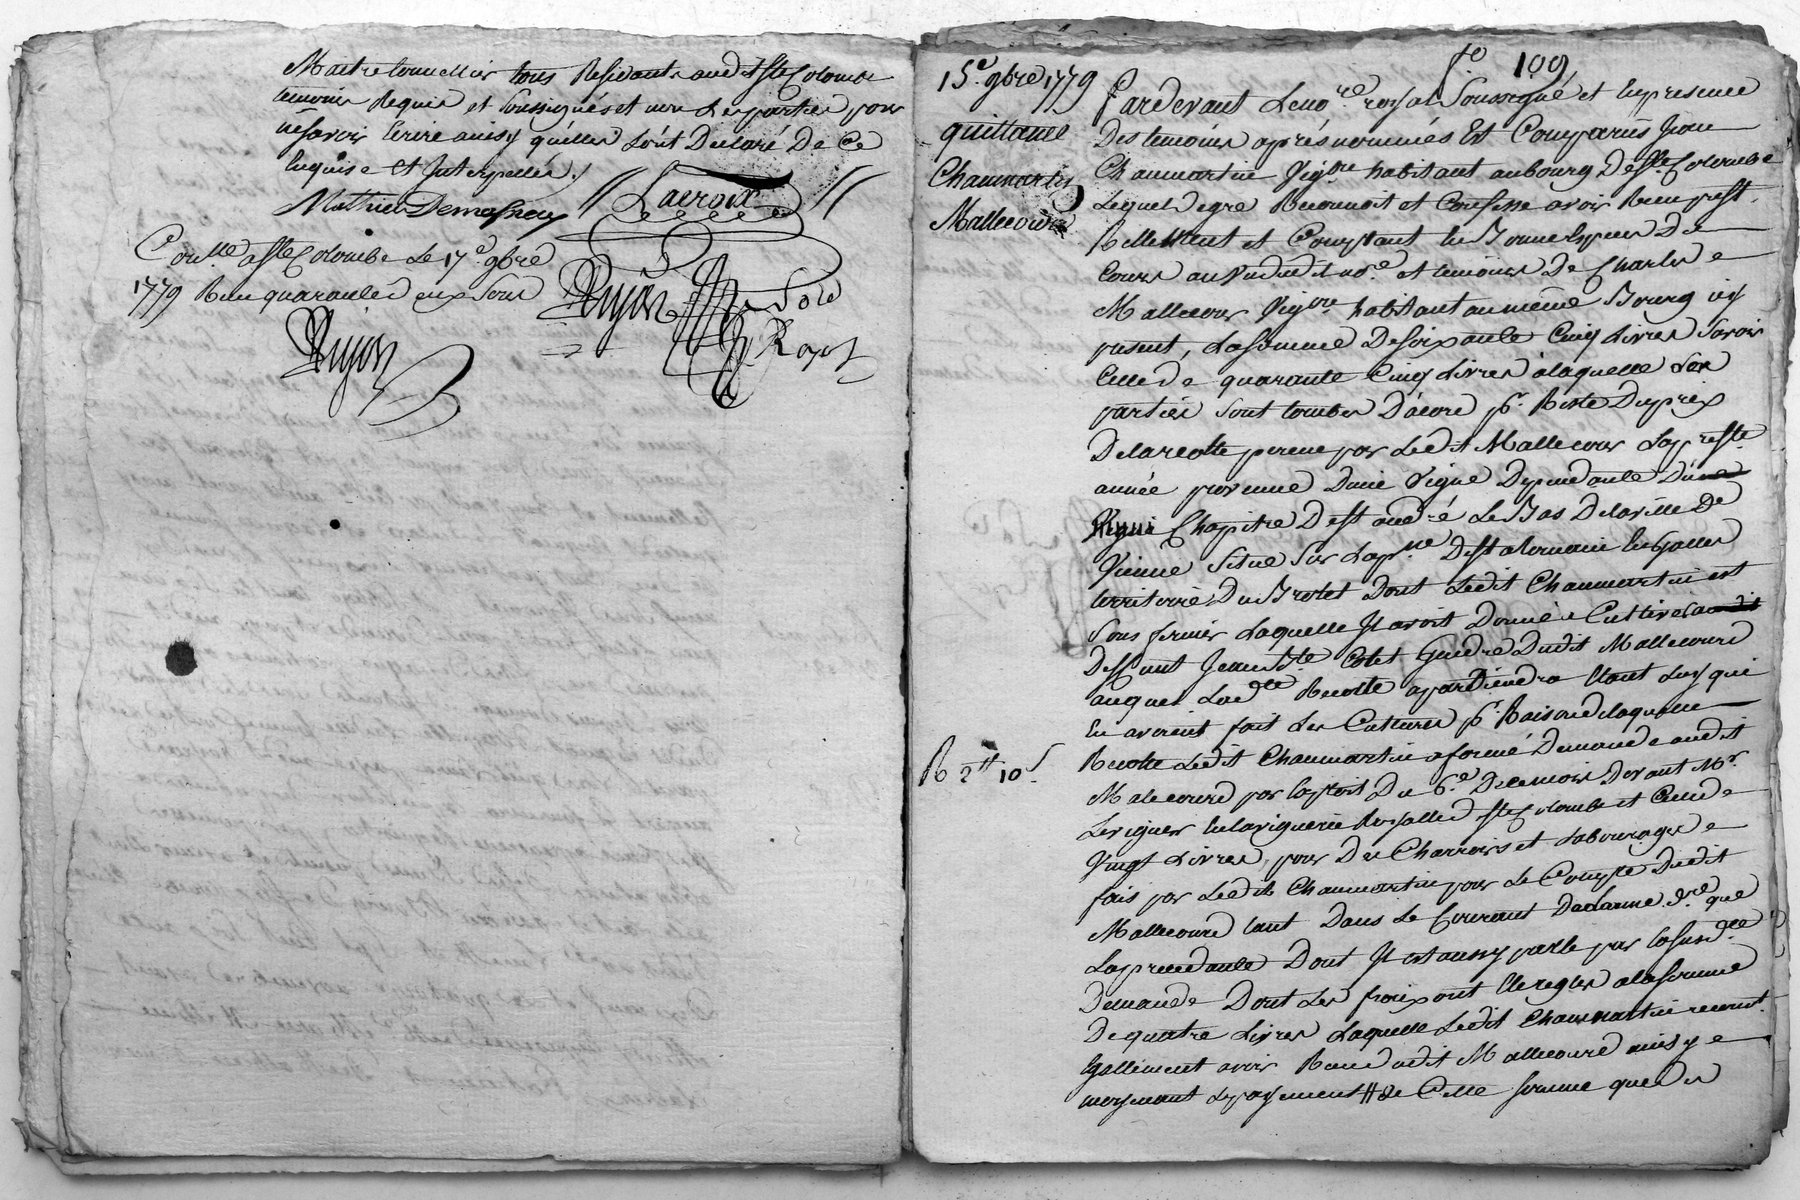 Maitre tonnellier tous Residants audit Ste Colombe
temoins Requis et Soussignés et non Les parties pour
ne savoir Ecrire ainsy qu'elles L'ont Declaré De Ce
Enquise et Interpellés.
Mathieu
Lacroix
Conllé a Ste Colombe Le 17e 9bre
1779 Reçu quarante deux Sous
fo 109
15e 9bre 1779
quittance
Chaumartin
Mallecourd
R 2lt 10s
Pardevant Le nore royal Soussigné et En presence
Des temoins aprés nommés Est Comparus Jean
Chaumartin Vigron habitant au bourg De Ste Colombe
Lequel De gré Reconnoit et Confesse avoir Recu
Rellement et Comptant En Bonnes Especes De
Cours au vu dudit nore et temoins De Charles
Mallecour Vigron habitant au même Bourg icy
present, La Somme De Soixante Cinq Livres Savoir
Celle De quarante Cinq Livres a laquelle Les
parties Sont tombés D'acord pr Reste Du prix
De La recolte percue par Ledit Mallecour La preste
année provenue D'une Vigne Dependante Du
Chapitre De St andré Le Bas De la ville De
Vienne Situé Sur La
territoire Du Dont Ledit Chaumartin est
Sous fermier Laquelle Il avoit Donné a Cultiver
Deffunt Jean Bte Colet Gendre Dudit Mallecourd
auquel Ladte Recolte apartiendra Etant Luy qui
En avoient fait Les Cultures pr Raison De laquelle
Recolte Ledit Chaumartin a formé Demande audit
Malecourd par Exploit Du 6e De ce mois Devant Mr
Le viguier En la viguerie Royalle De Ste Colombe et Celle De
Vingt Livres pour Des Charrois et Labourages
fais par Ledit Chaumartin pour Le Compte Dudit
Mallecourd tant Dans Le Courant De que
La precedante Dont Il est aussy parlé par La susdte
Demande Dont Les fraix ont Eté reglés a la somme
De quatre Livres Laquelle Ledit Chaumartin reconnoit
Egallement avoir Recue dudit Mallecourd ainsy
moyenant Le payement # De Cette somme que Des